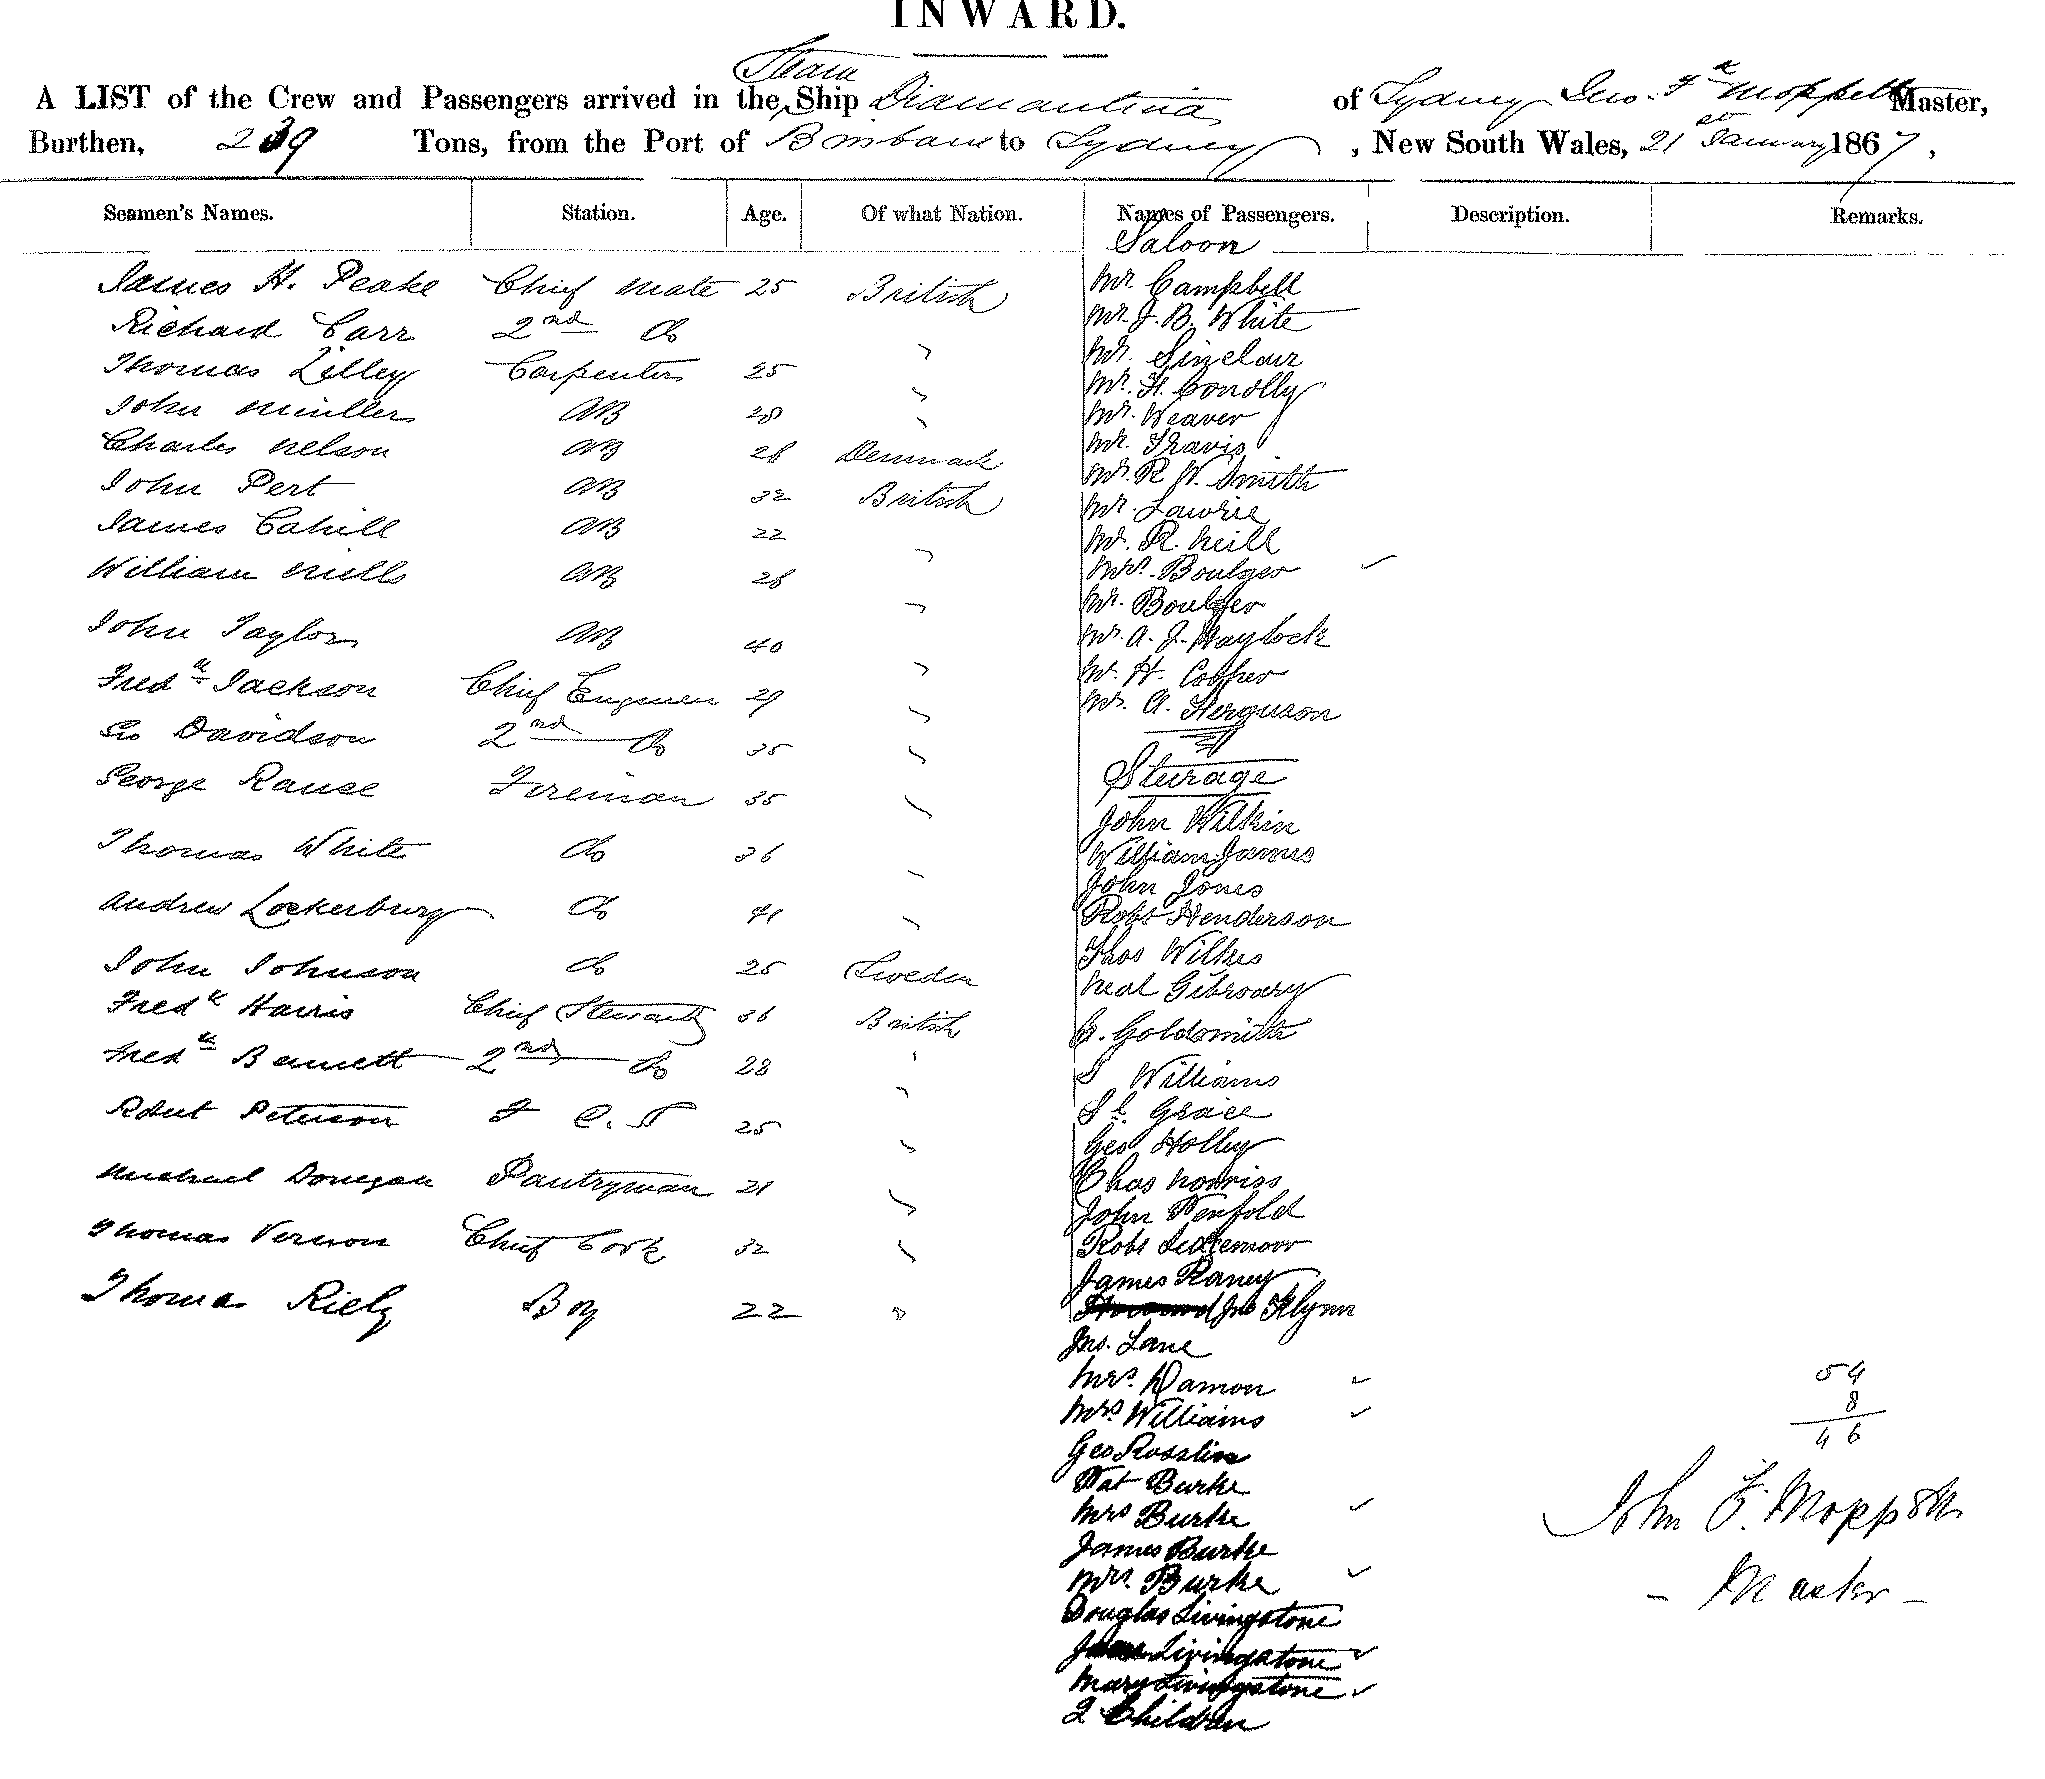 INWARD.
Steam
A LIST of the Crew and Passengers arrived in the Ship Diamantina of Sydney Jno. Fk Moppett Master,
Burthen, 239 Tons, from the Port of Brisbane to Sydney, New South Wales, 21st January 1867,
Seamen's Names. Station. Age. Of what Nation. Names of Passengers. Description. Remarks.
Saloon
James H. Peake Chief Mate 25 British Mr. Campbell
Richard Carr 2nd Do " Mr. J. B. White
Mr. Sinclair
Thomas Lilley Carpenter 25 " Mr. H. Conolly
John Muller AB 28 " Mr. Weaver
Charles Nelson AB 28 Denmark Mr. Travis
John Pert AB 32 British Mr. R. W. Smith
Mr. Lawrie
James Cahill AB 22 " Mr. R. Neill
William Mills AB 28 " Mrs. Boulger ✓
Mr. Boulger
John Taylor AB 40 " Mr. A. J. Haylock
Mr. H. Cooper
Fredk Jackson Chief Engineer 29 " Mr. A. Ferguson
Geo Davidson 2nd Do 35 "
Steerage
George Rause Fireman 35 "
John Wilkin
Thomas White Do 36 " William James
John Jones
Andrew Lockerbury Do 41 " Robt Henderson
Thos Wilkes
John Johnson Do 25 Sweden Neal
Fredk Harris Chief Steward 36 British G. Goldsmith
Fredk Bennett 2nd Do 28 " Williams
Robert Peterson F C. S 25 " Grace
Geo Holley
Michael Donegan Pantryman 21 " Chas Norriss
John Penfold
Thomas Vernon Chief Cook 32 " Robt
James Raney
Thomas Riely Boy 22 " Jno Flynn
Jno. Lane
Mrs. Damon ✓ 54
Mrs Williams ✓ 8
Geo Rosslin 46
Pat Burke
Mrs Burke ✓ John F. Moppett
James Burke
Mrs. Burke ✓ - Master -
Douglas Livingstone
Livingstone ✓
Mary Livingstone ✓
2 Children